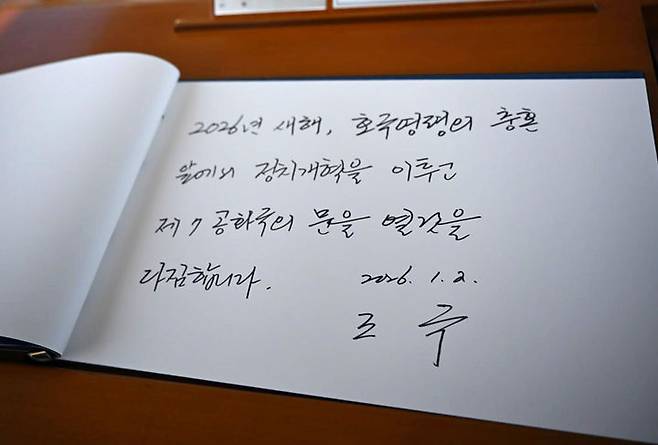 2026년 새해, 호국영령의 충혼
앞에서 정치개혁을 이루고
제7공화국의 문을 열 것을
다짐합니다.
2026. 1. 2.
조 국